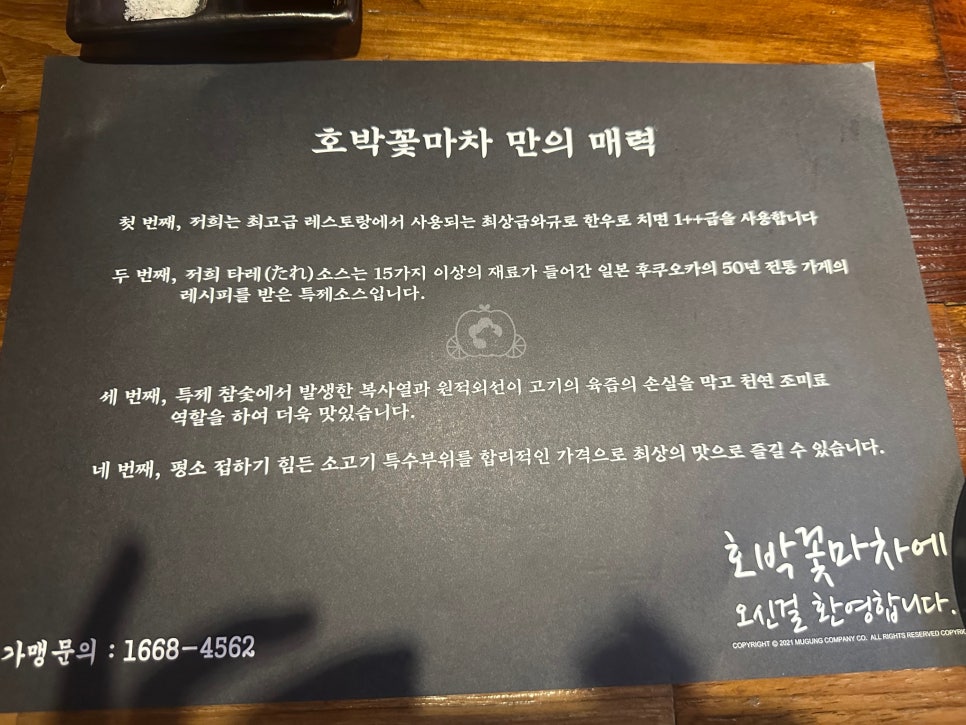 호박꽃마차 만의 매력
첫 번째, 저희는 최고급 레스토랑에서 사용되는 최상급와규로 한우로 치면 1++급을 사용합니다
두 번째, 저희 타레(たれ)소스는 15가지 이상의 재료가 들어간 일본 후쿠오카의 50년 전통 가게의
레시피를 받은 특제소스입니다.
세 번째, 특제 참숯에서 발생한 복사열과 원적외선이 고기의 육즙의 손실을 막고 천연 조미료
역할을 하여 더욱 맛있습니다.
네 번째, 평소 접하기 힘든 소고기 특수부위를 합리적인 가격으로 최상의 맛으로 즐길 수 있습니다.
호박꽃마차에
오신걸 환영합니다.
COPYRIGHT © 2021 MUGUNG COMPANY CO. ALL RIGHTS RESERVED
가맹문의 : 1668-4562